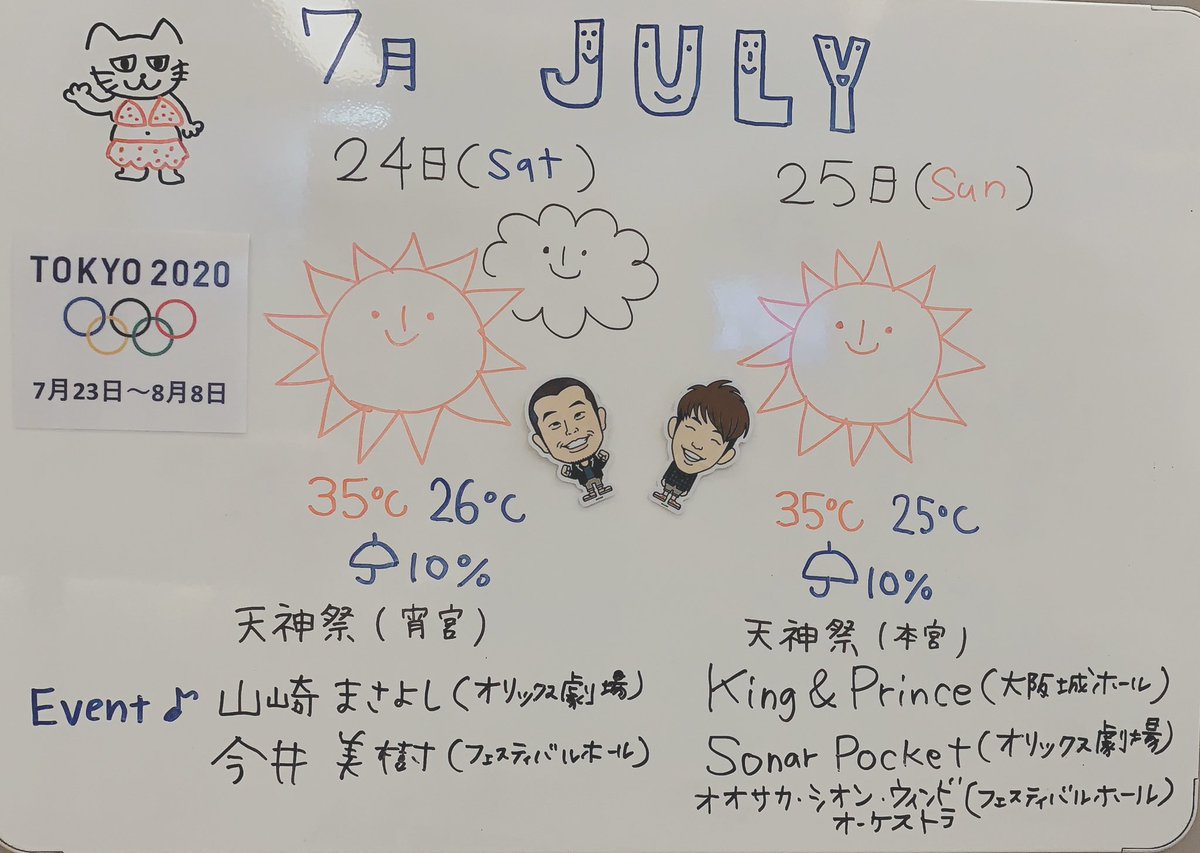 7月 JULY
24日(Sat)
25日(Sun)
TOKYO 2020
7月23日～8月8日
35℃ 26℃
10%
天神祭(宵宮)
35℃ 25℃
10%
天神祭(本宮)
Event♪
山崎 まさよし(オリックス劇場)
今井 美樹(フェスティバルホール)
King & Prince(大阪城ホール)
Sonar Pocket(オリックス劇場)
オオサカ・シオン・ウィンド(フェスティバルホール)
オーケストラ